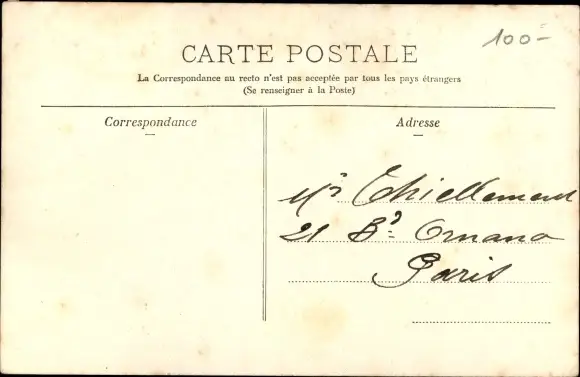 100-
CARTE POSTALE
La Correspondance au recto n'est pas acceptée par tous les pays étrangers
(Se renseigner à la Poste)
Correspondance
Adresse
Mr Thiellement
21 Bd Ornano
Paris